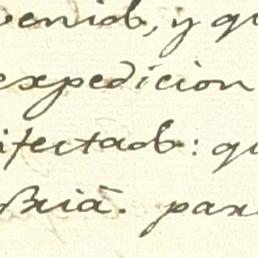 venido, y qu
expedicion
ifestado: qu
Bria. par